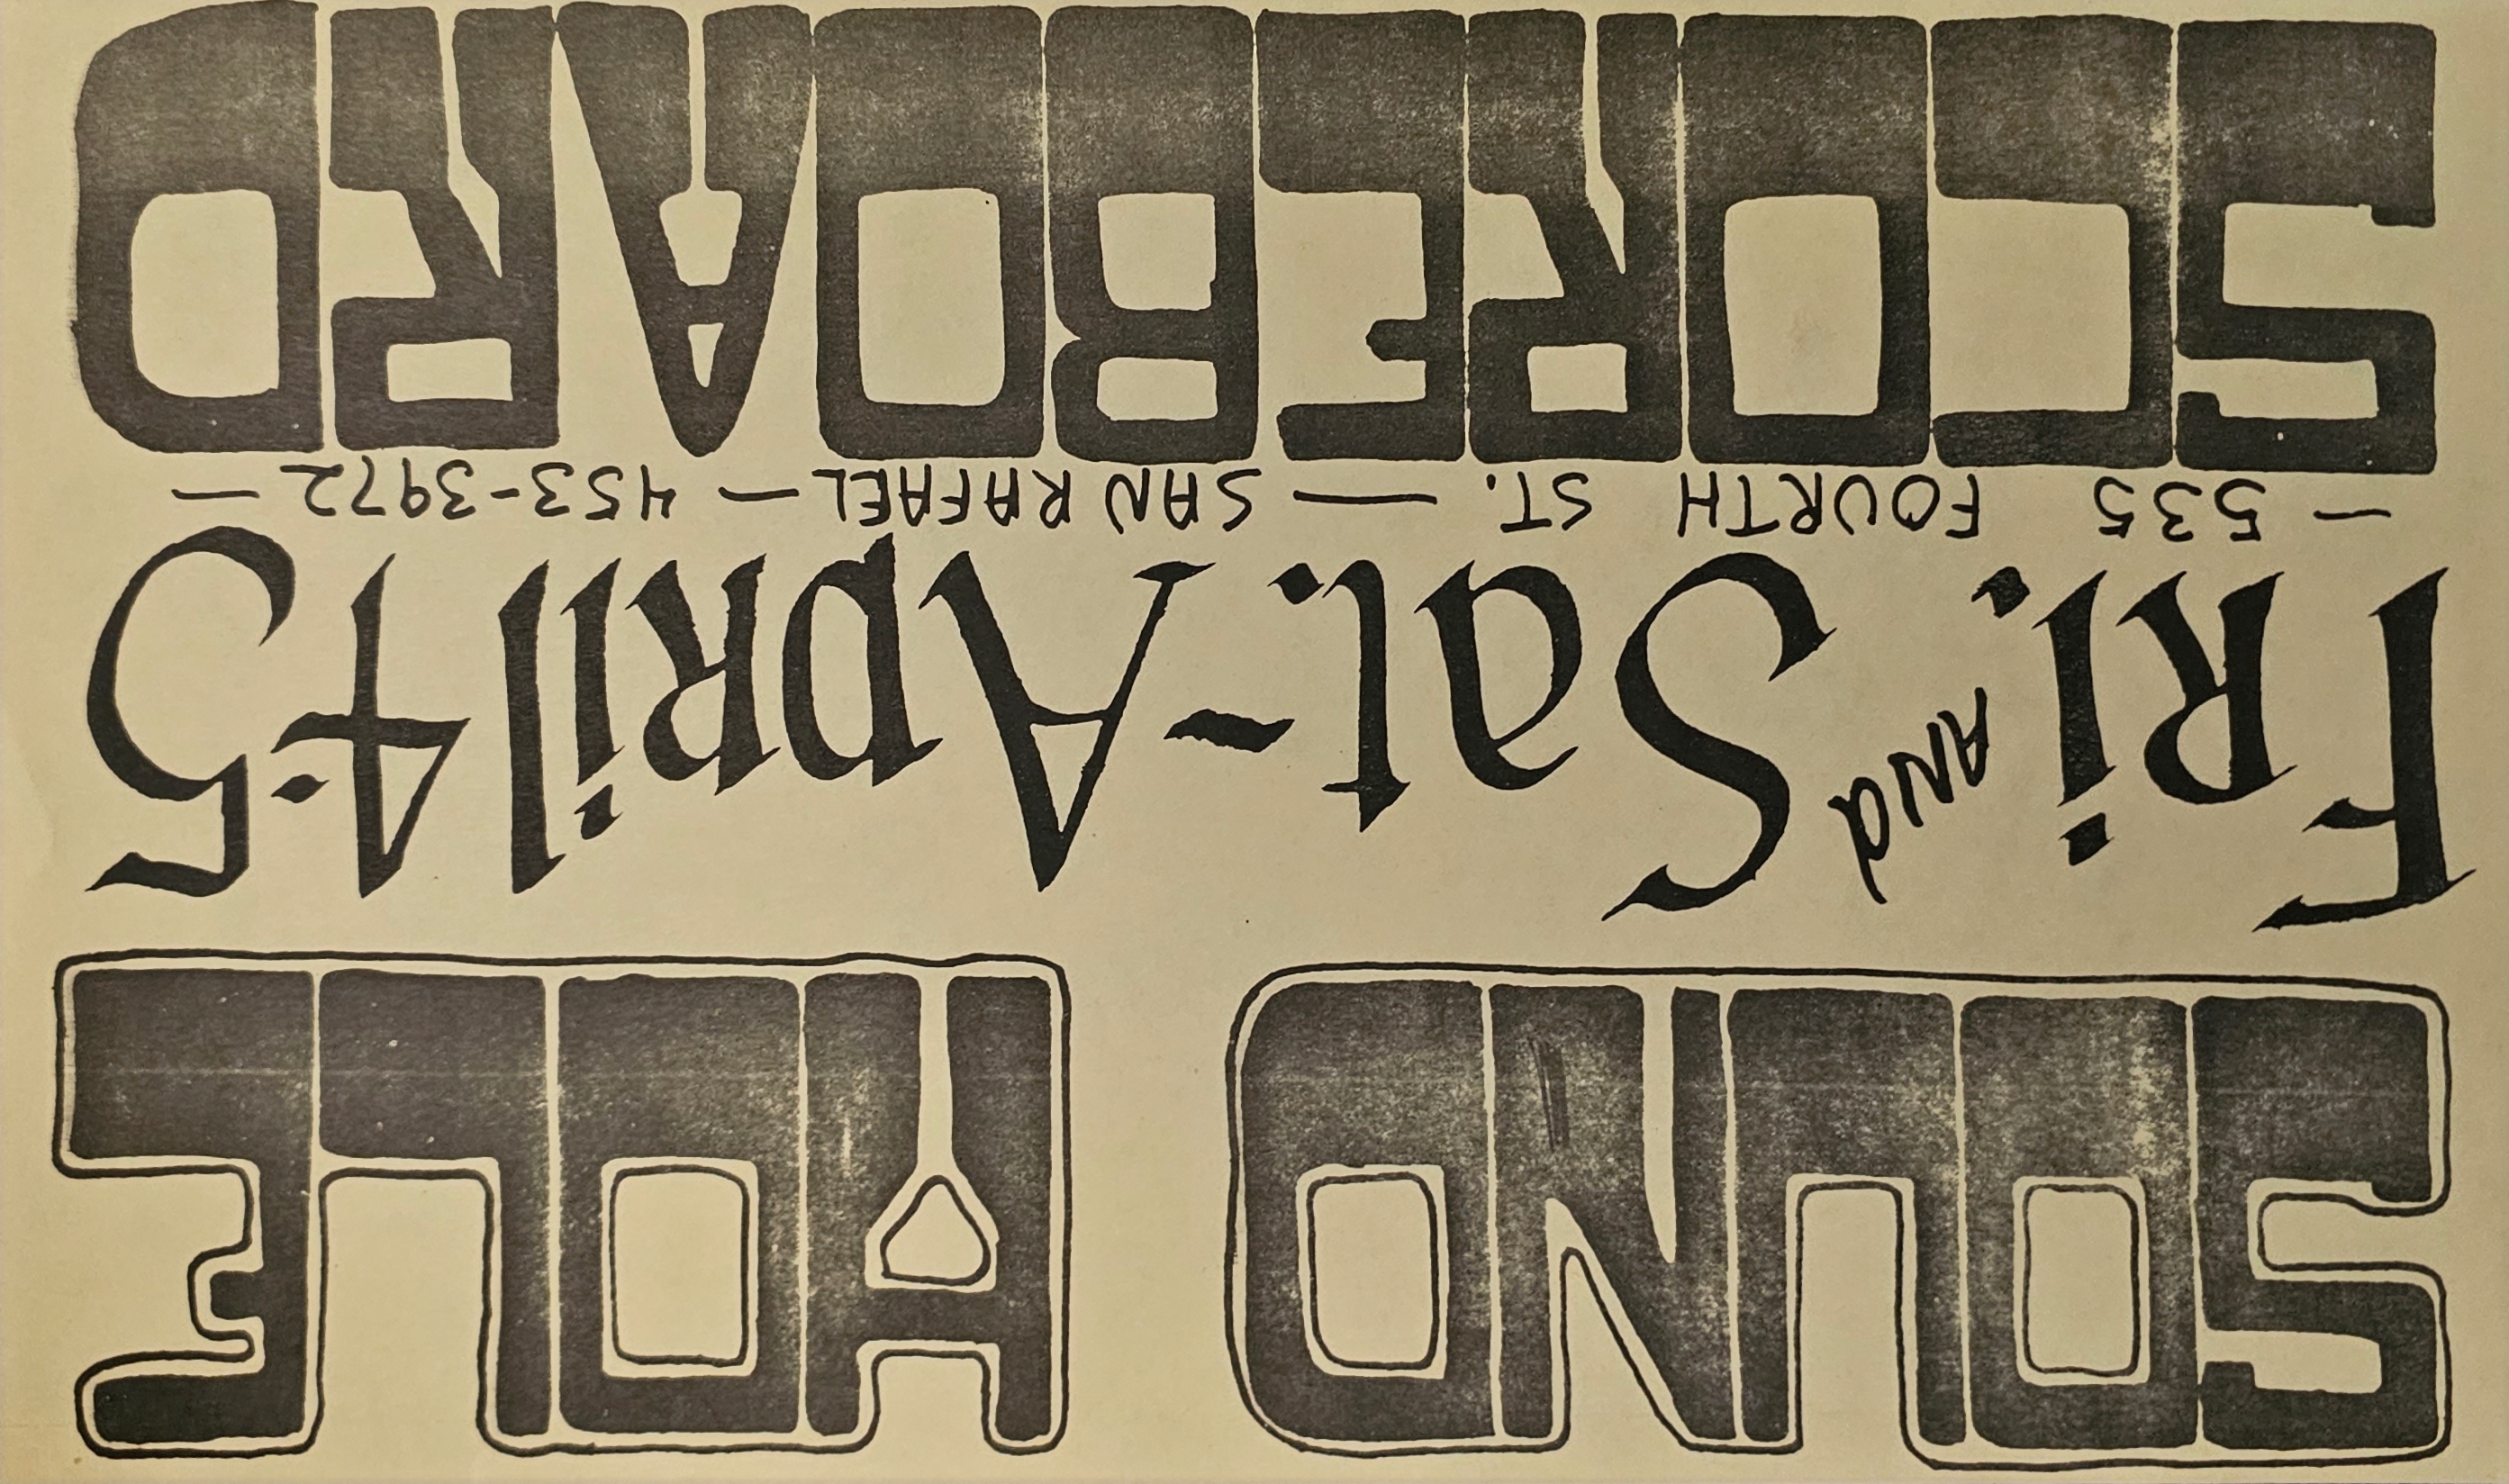 SOUND HOLE
FRi. ANd Sat.-ApRil 4-5
— 535 FOURTH ST. — SAN RAFAEL — 453-3972 —
SCOREBOARD